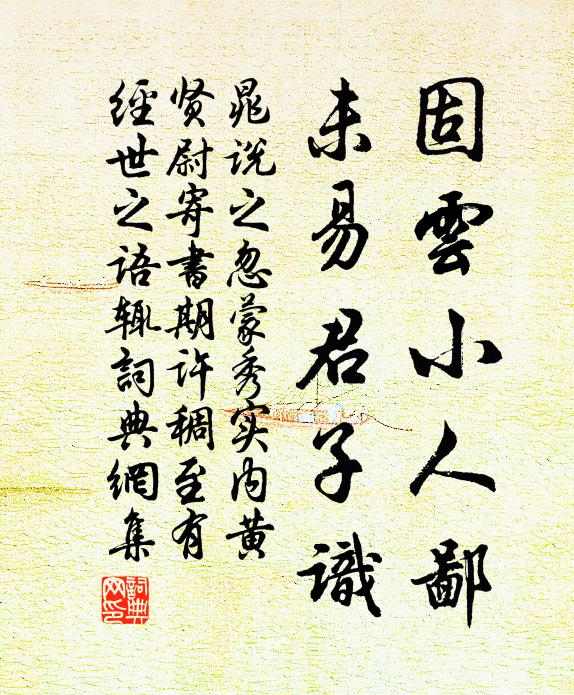 固雲小人鄙
未易君子識
晁说之忽蒙秀实内黄
贤尉寄書期许稠至有
經世之语辄詞典網集
詞典
网印